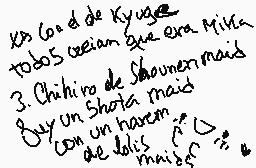 xD Con el de Kyuge
todos creian que era Mika
3. Chihiro de Shounen maid
Guy un Shota maid
con un harem
de lolis
maids